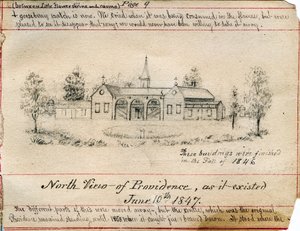 (between Little Flower Shrine and Ravine) Page 9
A gooseberry patch is now. We stood when it was being consumed in the flames, but were
pleased to see it disappear that many we would now have been willing to take it away.
These buildings were finished
in the Fall of 1846
North View of Providence, as it existed
June 10th 1847.
The different parts of this were moved away, but the centre, which was the original
Providence remained standing until 1888 when it caught fire & burned down. It stood where the